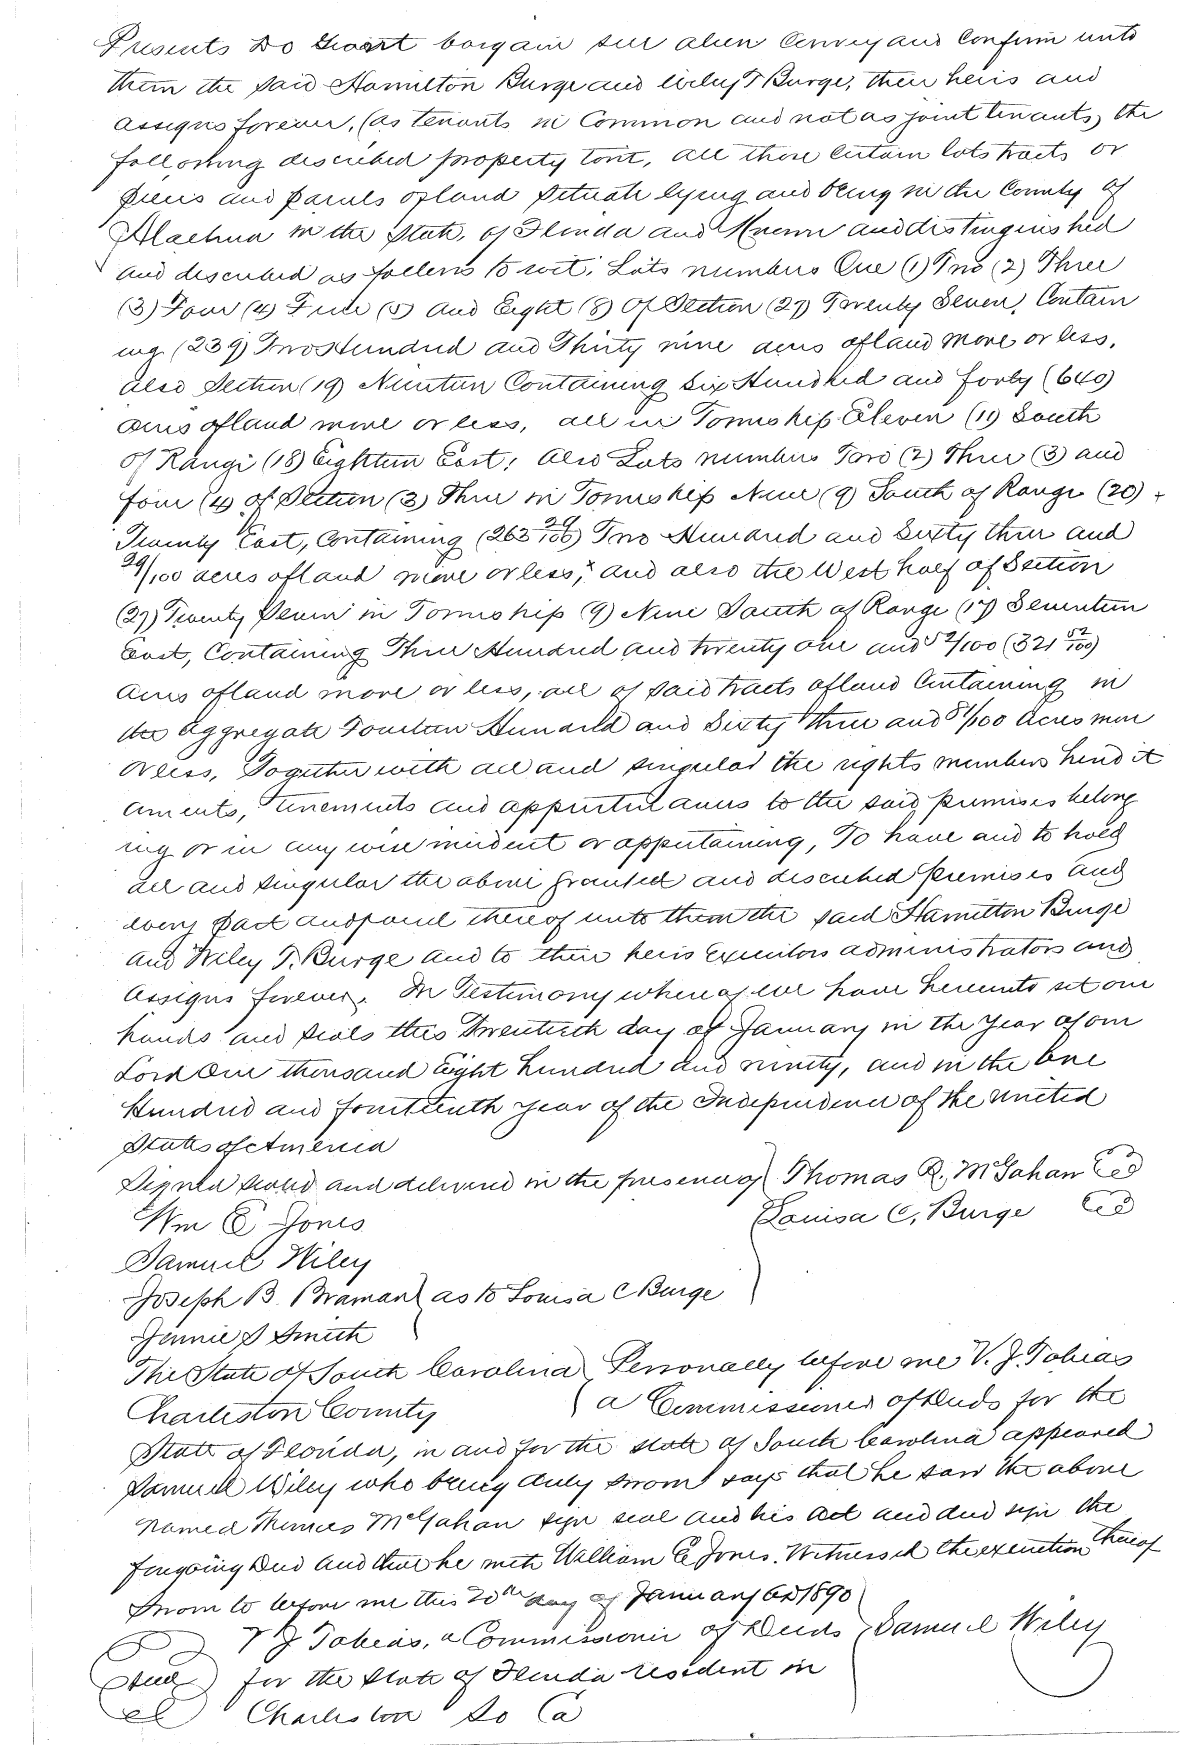 Presents Do Grant bargain sell alien Convey and Confirm unto
them the said Hamilton Burge and Wiley T Burge, their heirs and
assigns forever, (as tenants in Common and not as joint tenants, the
following described property towit, all those certain lots tracts or
pieces and parcels of land situate lying and being in the County of
Alachua in the State, of Florida and Known and distinguished
and described as follows to wit; Lots numbers One (1) Two (2) Three
(3) Four (4) Five (5) and Eight (8) Of Section (27) Twenty Seven, Contain
ing (239) Two Hundred and Thirty nine acres of land more or less,
also Section (19) Nineteen Containing Six Hundred and forty (640)
acres of land more or less, all in Township Eleven (11) South
of Range (18) Eighteen East; also Lots numbers Two (2) Three (3) and
four (4) of Section (3) Three in Township Nine (9) South of Range (20)
Twenty East, Containing (263 29/100) Two Hundred and Sixty three and
29/100 acres of land more or less; and also the West half of Section
(27) Twenty Seven in Township (9) Nine South of Range (17) Seventeen
East, Containing Three Hundred and twenty one and 52/100 (321 52/100)
acres of land more or less, all of said tracts of land Containing in
the aggregate Fourteen Hundred and Sixty three and 81/100 acres more
or less, Together with all and singular the rights members heredit
aments, tenements and appurtenances to the said premises belong
ing or in any wise incident or appertaining, To have and to hold
all and singular the above granted and described premises and
every part and parcel thereof unto them the said Hamilton Burge
and Wiley T. Burge and to their heirs Executors administrators and
assigns forever. In Testimony whereof we have hereunto set our
hands and seals this Twentieth day of January in the year of our
Lord One thousand Eight hundred and ninety, and in the One
Hundred and fourteenth year of the Independence of the United
States of America
Signed sealed and delivered in the presence of } Thomas R. McGahan Seal
Wm E Jones Louisa C. Burge Seal
Samuel Wiley
Joseph B. Braman } as to Louisa C Burge
Jennie S Smith
The State of South Carolina } Personally before me V. J. Tobias
Charleston County } a Commissioner of Deeds for the
State of Florida, in and for the state of South Carolina appeared
Samuel Wiley who being duly sworn says that he saw the above
named Thomas McGahan sign seal and his act and deed sign the
foregoing Deed and that he with William E Jones. Witnessed the execution thereof
Sworn to before me this 20th day of January AD 1890
V J Tobias, a Commissioner of Deeds } Samuel Wiley
Seal for the State of Florida resident in
Charleston So Ca